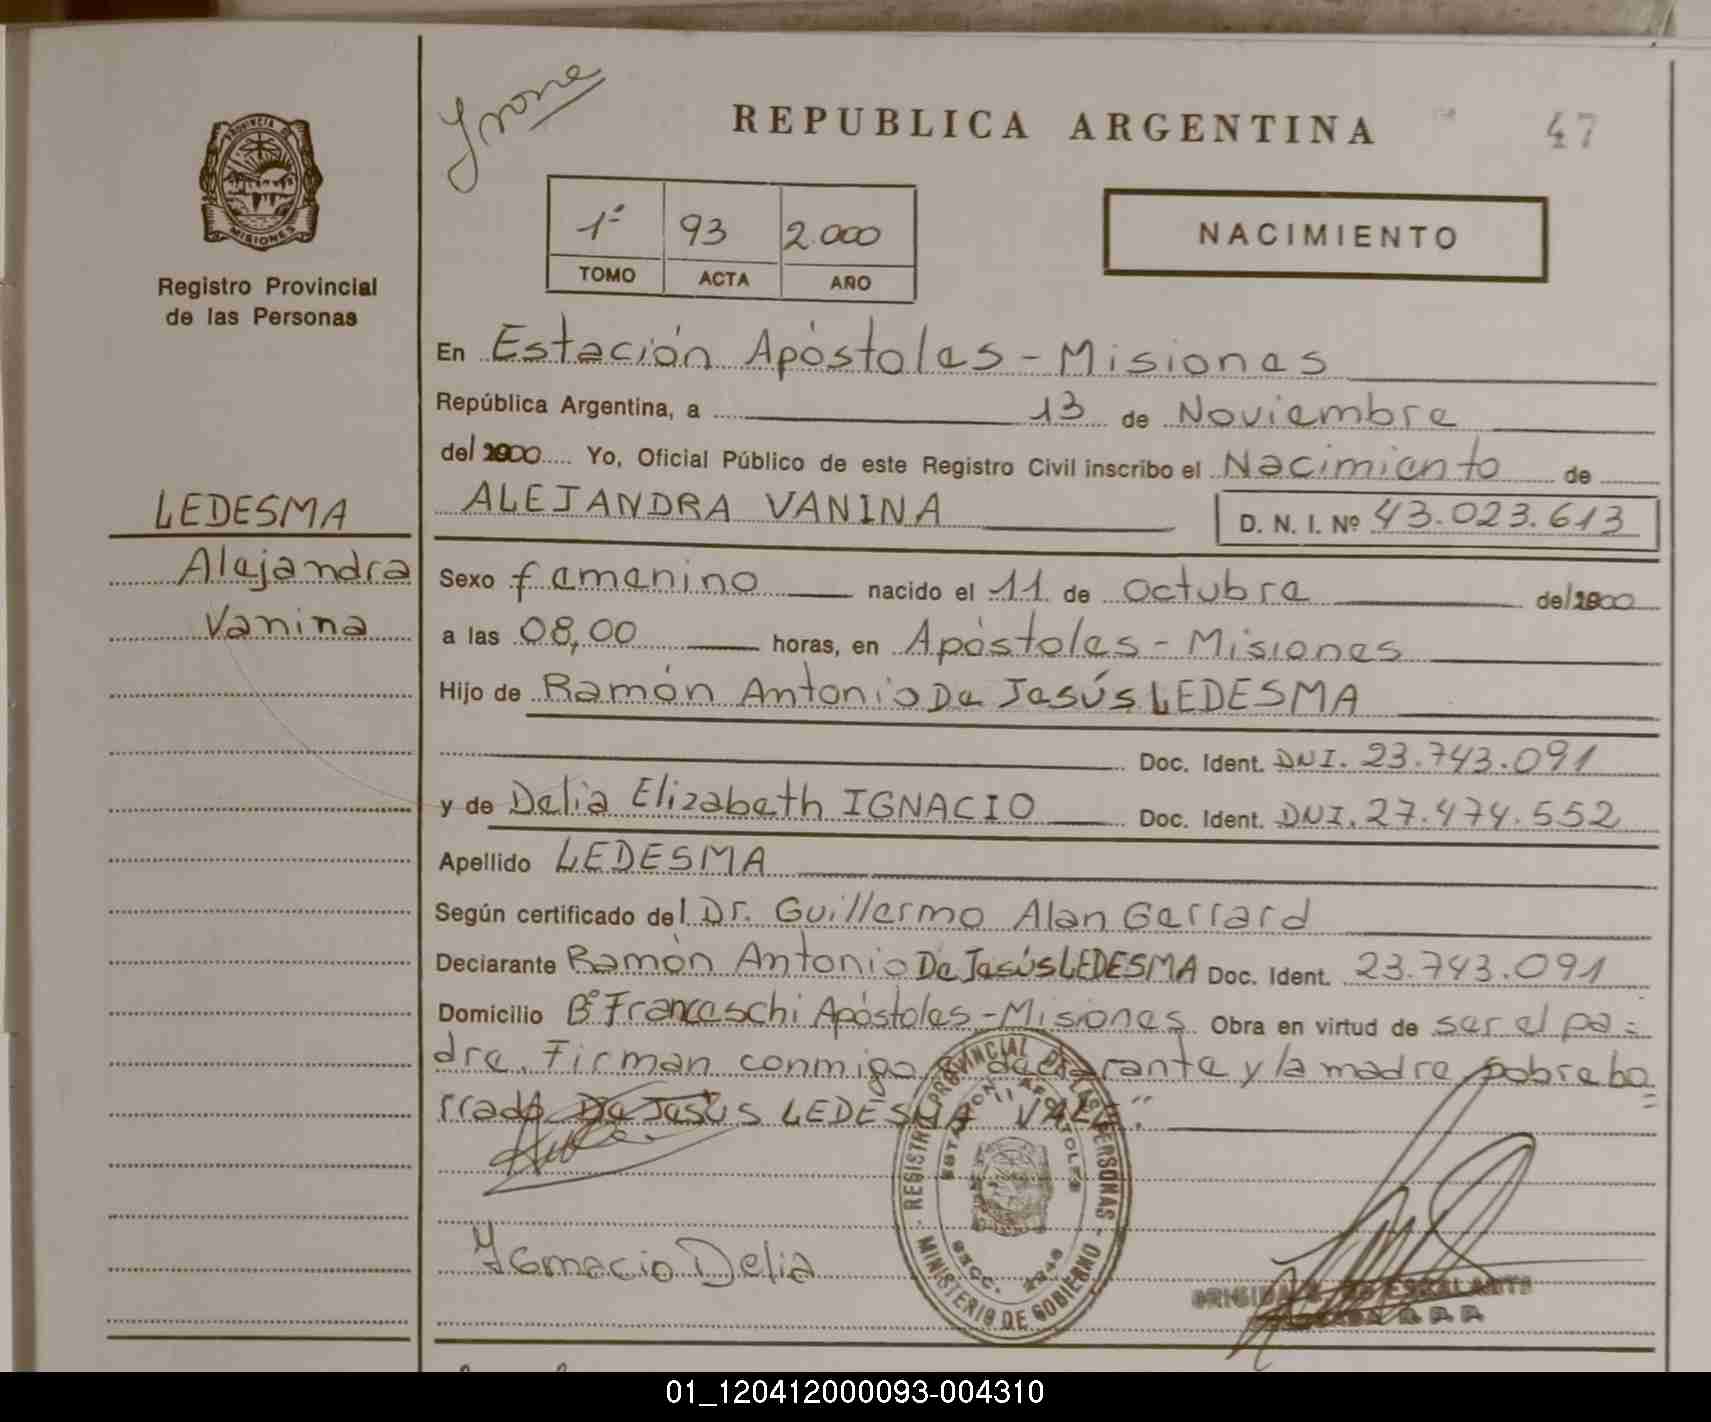 Irone
REPUBLICA ARGENTINA
47
PROVINCIA DE
MISIONES
Registro Provincial
de las Personas
1º 93 2.000
TOMO ACTA AÑO
NACIMIENTO
En Estación Apóstoles - Misiones
República Argentina, a 13 de Noviembre
del 2000 Yo, Oficial Público de este Registro Civil inscribo el Nacimiento de
ALEJANDRA VANINA
D. N. I. Nº 43.023.613
LEDESMA
Alejandra
Vanina
Sexo femenino nacido el 11 de octubre del 2000
a las 08,00 horas, en Apóstoles - Misiones
Hijo de Ramón Antonio De Jesús LEDESMA
Doc. Ident. DNI. 23.743.091
y de Delia Elizabeth IGNACIO Doc. Ident. DNI. 27.474.552
Apellido LEDESMA
Según certificado del Dr. Guillermo Alan Gerrard
Declarante Ramón Antonio De Jesús LEDESMA Doc. Ident. 23.743.091
Domicilio Bº Franceschi Apóstoles - Misiones Obra en virtud de ser el pa=
dre. Firman conmigo el declarante y la madre, sobre bo=
rrado De Jesús LEDESMA VALE."
REGISTRO PROVINCIAL DE LAS PERSONAS
MINISTERIO DE GOBIERNO
ESTACION APOSTOLES
Ignacio Delia
DE ESCALANTE
01_120412000093-004310